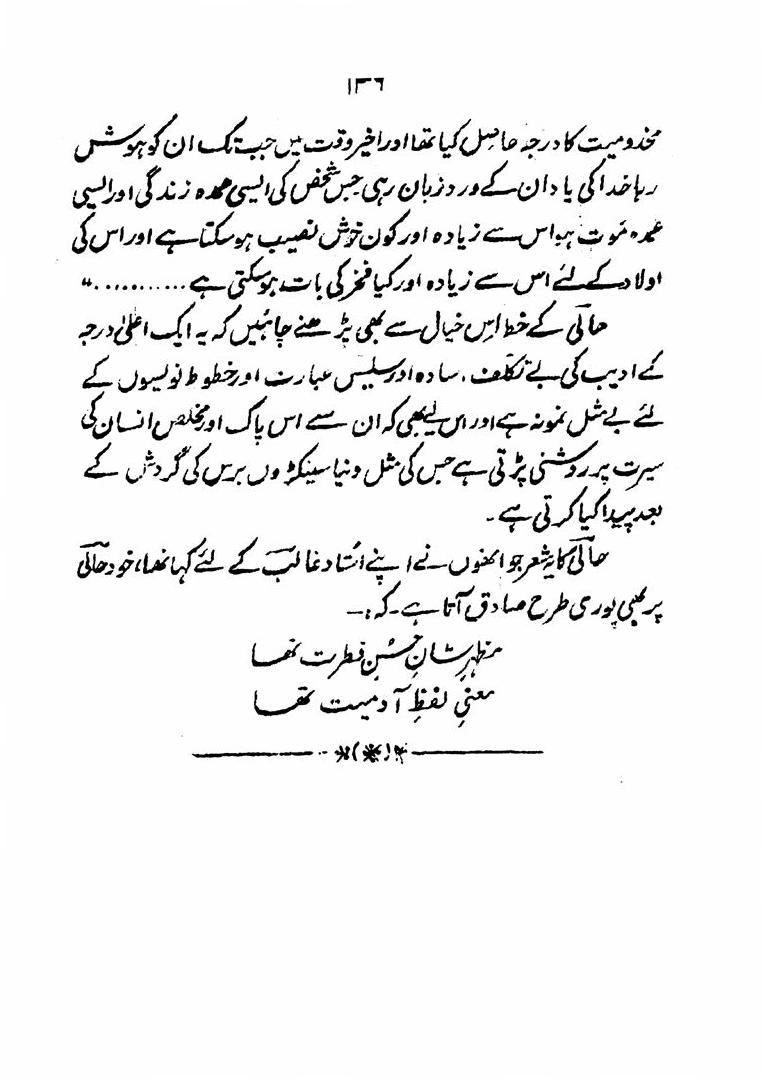 ۱۳۶
مخدومیت کا درجہ حاصل کیا تھا اور اخیر وقت میں جب تک ان کو ہوش
رہا خدا کی یاد ان کے ورد زبان رہی جس شخص کی ایسی عمدہ زندگی اور ایسی
عمدہ موت ہو اس سے زیادہ اور کون خوش نصیب ہو سکتا ہے اور اس کی
اولاد کے لئے اس سے زیادہ اور کیا فخر کی بات ہو سکتی ہے ..........."
حالیؔ کے خط اس خیال سے بھی پڑھنے چاہئیں کہ یہ ایک اعلیٰ درجہ
کے ادیب کی بے تکلف، سادہ اور سلیس عبارت اور خطوط نویسوں کے
لئے بے مثل نمونہ ہے اور اس لیے بھی کہ ان سے اس پاک اور مخلص انسان کی
سیرت پر روشنی پڑتی ہے جس کی مثل دنیا سینکڑوں برس کی گردش کے
بعد پیدا کیا کرتی ہے۔
حالیؔ کا یہ شعر جو انھوں نے اپنے اُستاد غالبؔ کے لئے کہا تھا، خود حالیؔ
پر بھی پوری طرح صادق آتا ہے۔ کہ:۔
مظہرِ شانِ حسُنِ فطرت تھا
معنیِ لفظِ آدمیت تھا